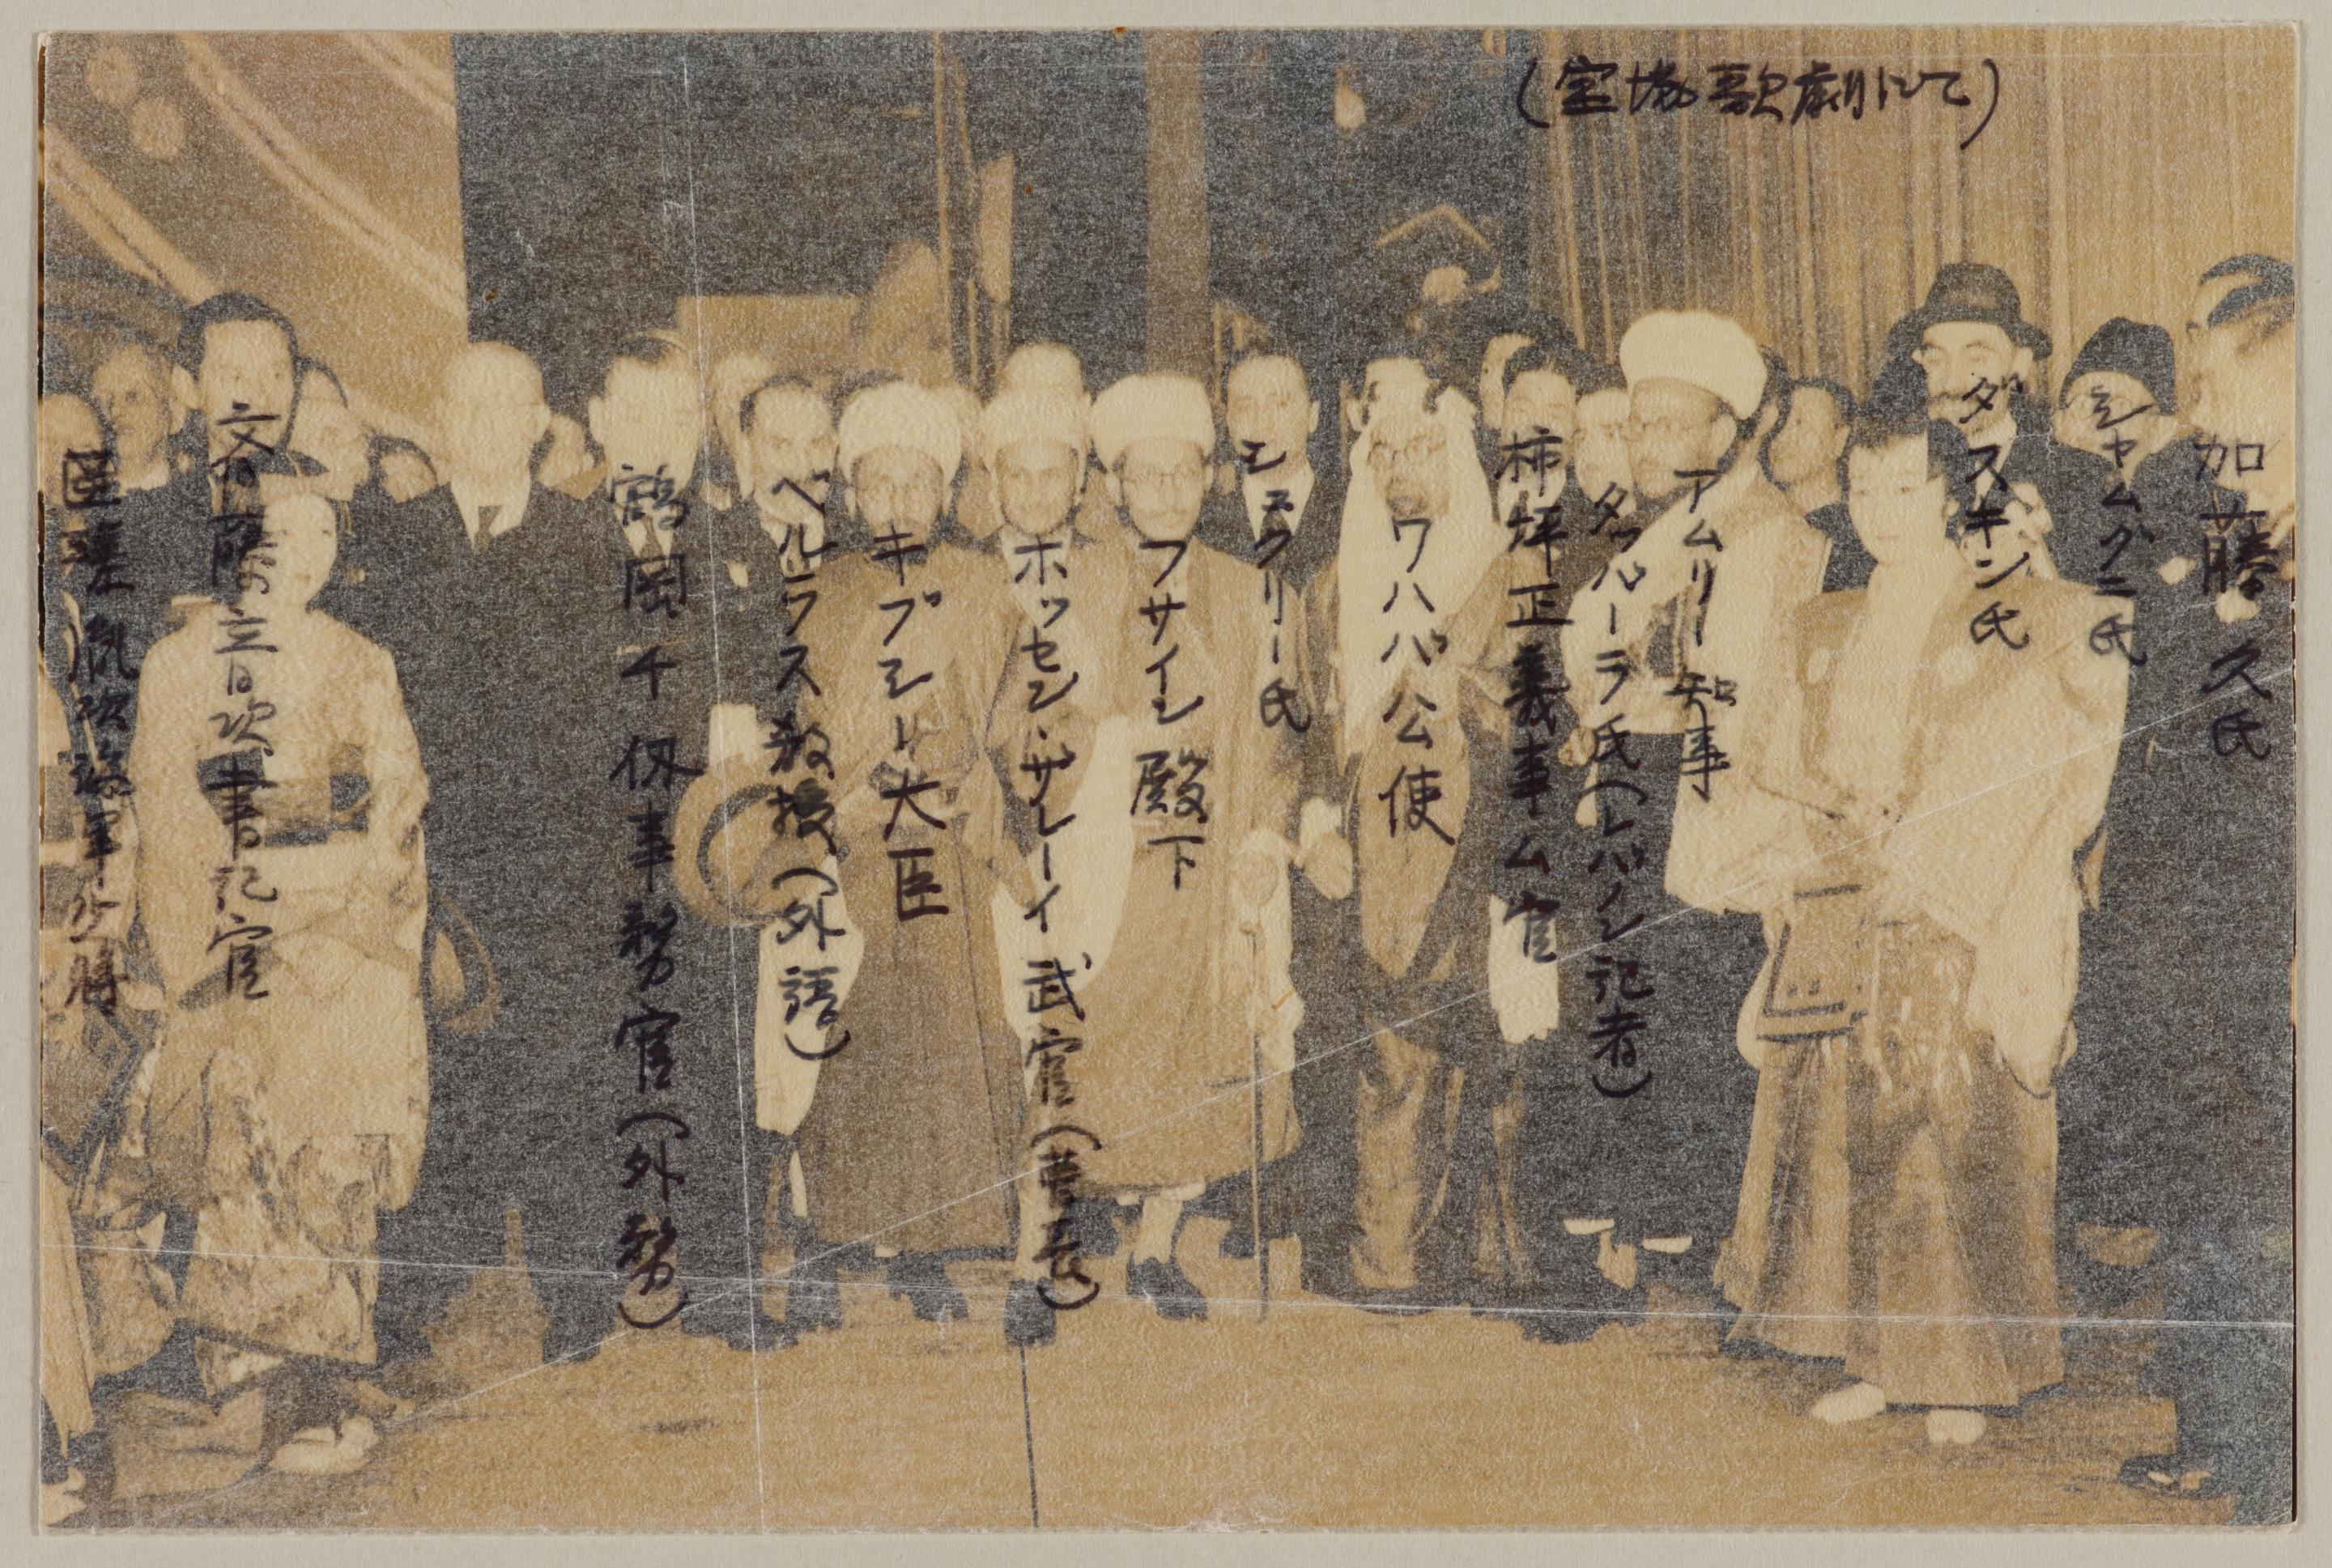 (宝塚歌劇にて)
加藤 久氏
シャムグニ氏
ダスキン氏
アムリー知事
タッバーラ氏(レバノン記者)
柿坪正義事ム官
ワハバ公使
シュクリー氏
フサイン殿下
ホッセン・サレーイ武官
キブシ大臣
ベルラス教授(外語)
鶴岡千仭事務官(外務)
書記官
匝瑳胤次海軍少将